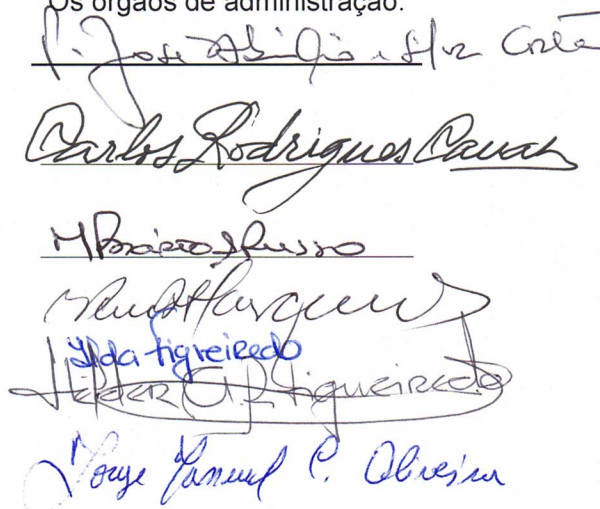 Os órgãos de administração.
José Abílio Silva Costa
Carlos Rodrigues
M Russo
Marques
Ilda Figueiredo
Helder Figueiredo
Jorge Manuel C. Oliveira